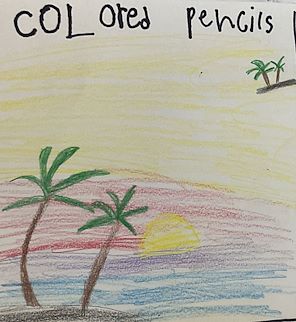 COLored pencils